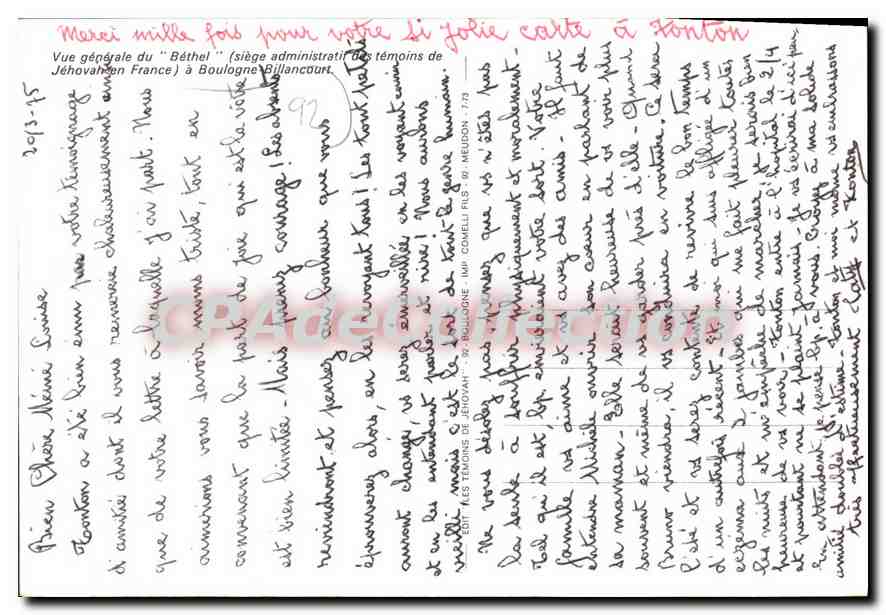 Merci mille fois pour votre si jolie carte à Tonton
Vue générale du " Béthel " (siège administratif des témoins de
Jéhovah en France) à Boulogne Billancourt
92
20/3-75
Bien Chère Mémé Louise
Tonton a été bien ému par votre témoignage
d'amitié dont il vous remercie chaleureusement ainsi
que de votre lettre à laquelle j'ai part. Nous
aimerions vous savoir moins triste, tout en
convenant que la part de joie qui est la vôtre
est bien limitée - Mais prenez courage ! Les absents
reviendront et pensez au bonheur que vous
éprouverez alors, en les revoyant tous ! Les tout petits
auront changé, vs serez émerveillée en les voyant
et en les entendant parler et rire ! Nous aurons
vieilli mais c'est le sort de tout le genre humain.
EDIT. "LES TÉMOINS DE JÉHOVAH" - 92 - BOULOGNE - IMP. COMELLI FILS - 92 - MEUDON - 7-73
Ne vous désolez pas, pensez que vs n'êtes pas
la seule à souffrir physiquement et moralement -
Tel qu'il est bp envieraient votre sort. Votre
famille vs aime et vs avez des amis - Il faut
entendre Michèle ouvrir son cœur en parlant de
sa maman - Elle serait heureuse de vs voir plus
souvent et même de vs garder près d'elle - Quand
Bruno viendra, il vs conduira en voiture. Ce sera
l'été et vs serez contente de revivre le bon temps
d'un autrefois récent - Et moi qui suis affligée d'un
eczéma aux 2 jambes qui me fait pleurer toutes
les nuits et m'empêche de marcher, je serais bien
heureuse de vs voir - Tonton entre à l'hopital le 2/4
et pourtant ne se plaint jamais - Je vs écrirai d'ici peu
En attendant, je pense bp à vous. Croyez à ma solide
amitié doublée d'estime - Tonton et moi même vs embrassons
très affectueusement et Tonton
CPAdeCollection